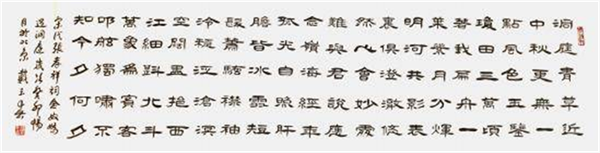 洞庭青草近
中秋更無一
點風色玉鑒
瓊田三萬頃
著我扁舟一
葉素月分輝
明河共影表
裏俱澄澈悠
然心會妙處
難與君說應
念嶺海經年
孤光自照肝
膽皆冰雪短
髮蕭騷襟袖
冷穩泛滄溟
空闊盡挹西
江細斟北斗
萬象為賓客
叩舷獨嘯不
知今夕何夕
宋代張孝祥詞念奴嬌
過洞庭歲次癸卯暢
月於北京